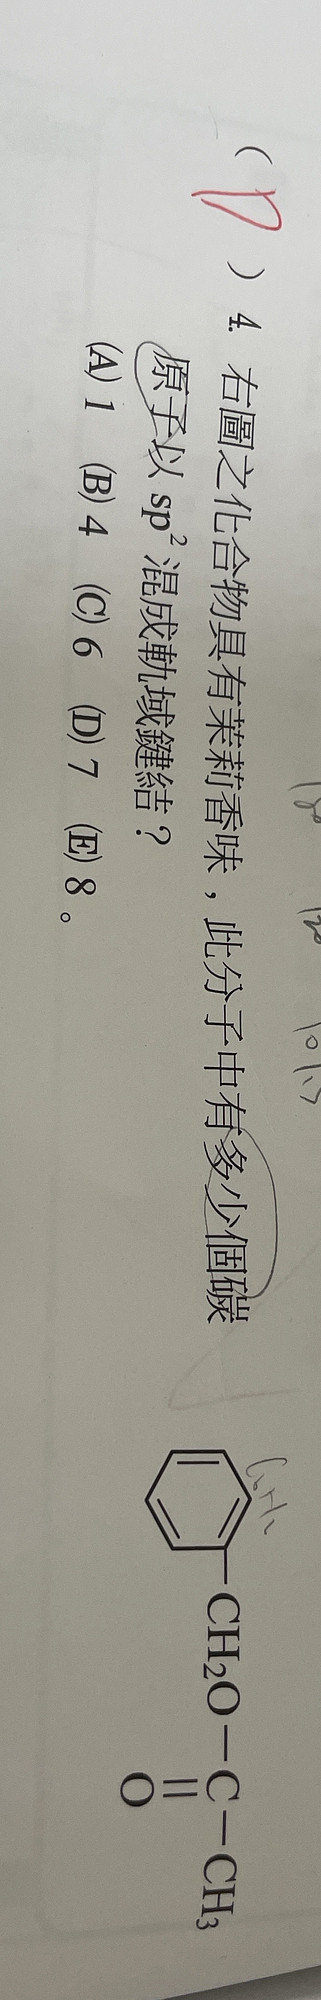 ( D ) 4. 右圖之化合物具有茉莉香味，此分子中有多少個碳
原子以 sp² 混成軌域鍵結？
(A) 1 (B) 4 (C) 6 (D) 7 (E) 8。
CH₂O－C－CH₃
O